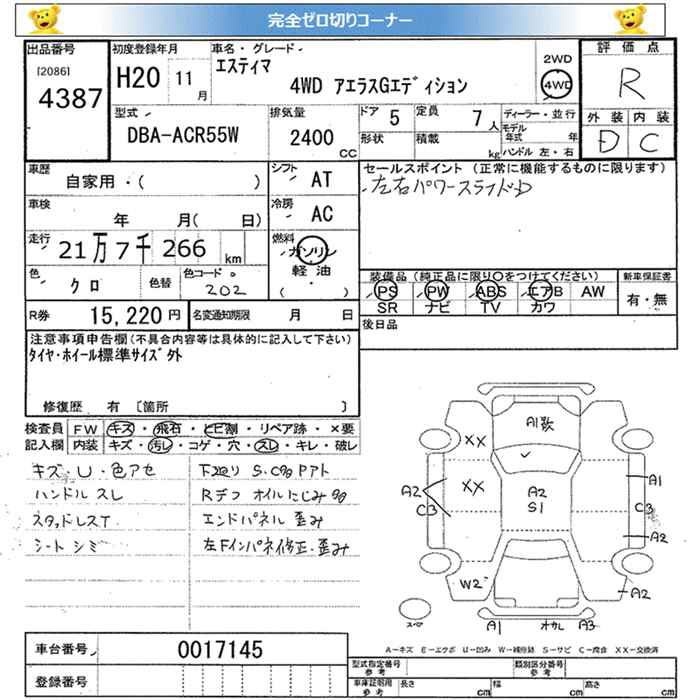 完全ゼロ切りコーナー
出品番号
[2086]
4387
初度登録年月
H20 11月
車名・グレード
エスティマ
4WD アエラスGエディション
2WD
4WD
評価点
R
外装 内装
D C
型式
DBA-ACR55W
排気量
2400
CC
ドア 5
形状
定員 7人
積載 kg
ディーラー・並行
モデル年式 年
ハンドル 左・右
車歴
自家用・( )
シフト AT
車検
年 月( 日)
冷房 AC
走行
21万7千266 km
燃料
ガソリン
軽油
( )
色
クロ
色替
色コード
202
セールスポイント(正常に機能するものに限ります)
左右パワースライドD
装備品(純正品に限り○をつけてください)
PS PW ABS エアB AW
SR ナビ TV カワ
新車保証書
有・無
R券 15,220円
名変通知期限 月 日
後日品
注意事項申告欄(不具合内容等は具体的に記入して下さい)
タイヤ・ホイール標準サイズ外
修復歴 有 〔箇所 〕
検査員
記入欄
FW キズ・飛石・ヒビ割・リペア跡・×要
内装 キズ・汚レ・コゲ・穴・スレ・キレ・破レ
キズ・U・色アセ
ハンドル スレ
スタッドレスT
シート シミ
下廻り S・C
Rデフ オイルにじみ
エンドパネル 歪み
左Fインパネ修正・歪み
A1数
XX
XX
A2
S1
A2
C3
A1
C3
A2
W2
A2
スペア
A1 オカレ A3
A-キズ E-エクボ U-凹み W-補修跡 S-サビ C-腐食 XX-交換済
車台番号 0017145
登録番号
型式指定番号
参考
類別区分番号
参考
車庫証明用
参考
長さ cm 幅 cm 高さ cm